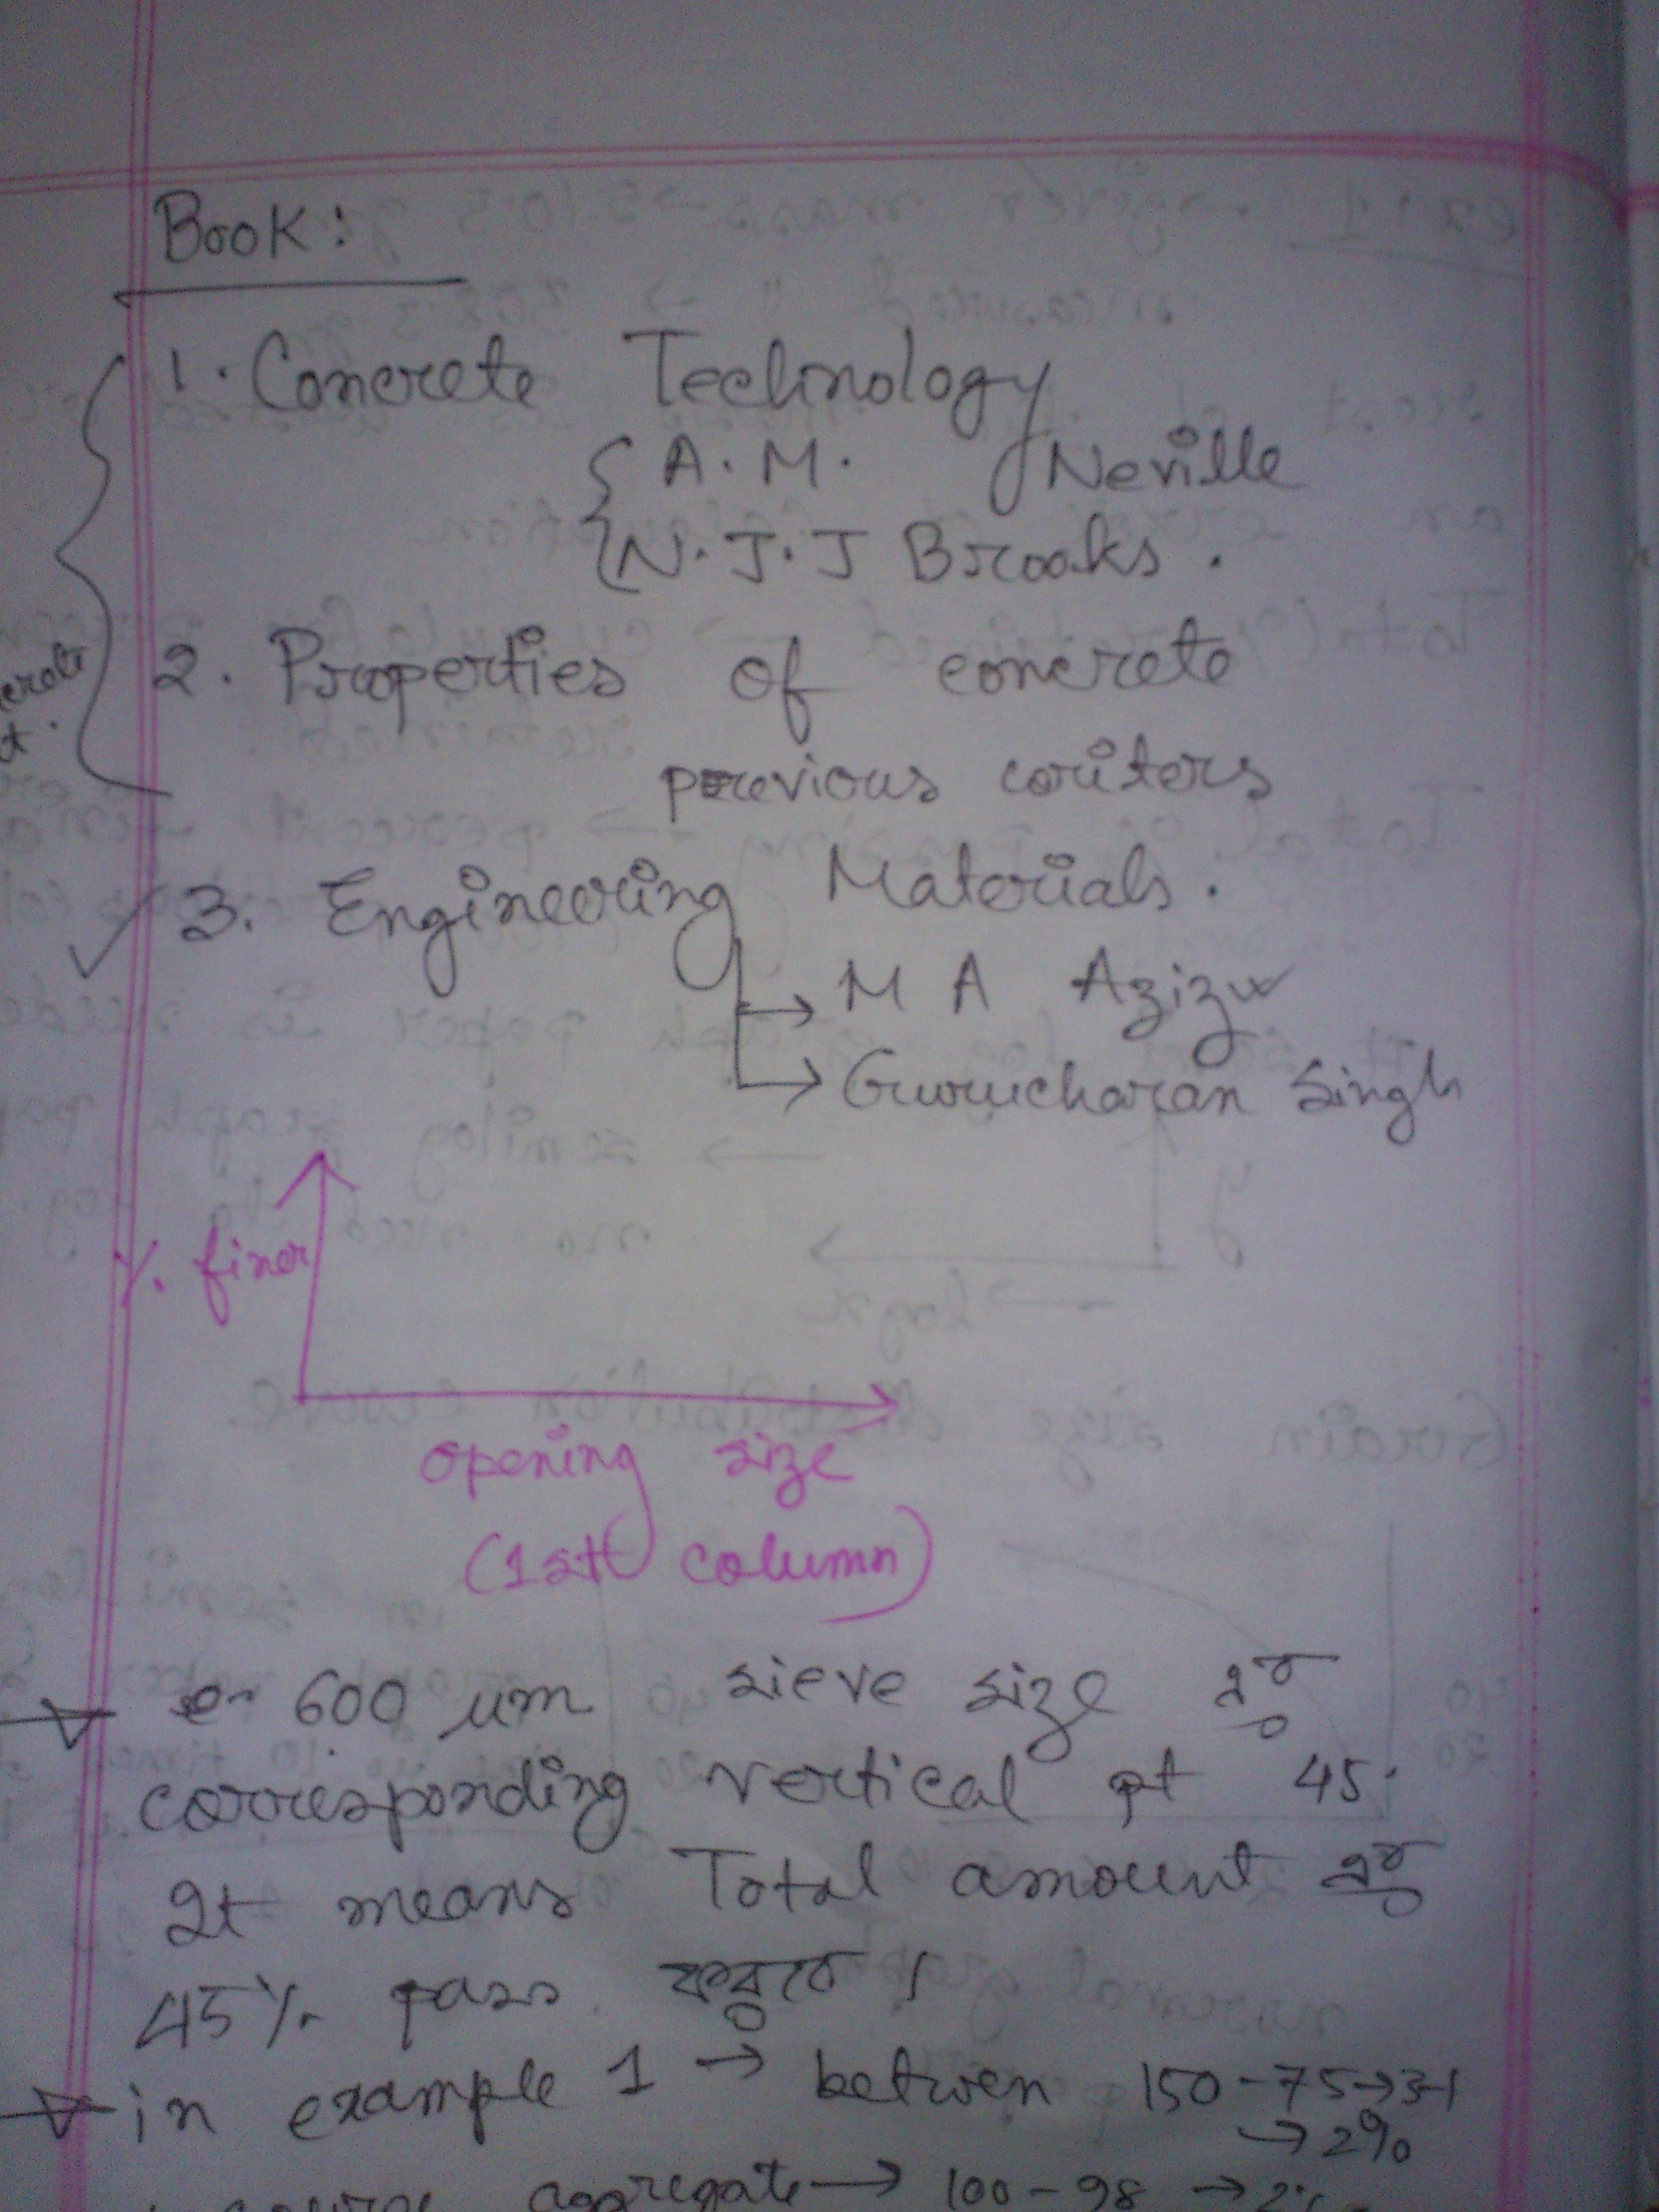 Book:
1. Concrete Technology
A. M. Neville
N. J. J Brooks.
2. Properties of concrete
previous writers
3. Engineering Materials.
M A Aziz
Gurucharan Singh
% finer
opening size
(1st column)
600 um sieve size এর
corresponding vertical pt 45.
It means Total amount এর
45% pass করবে।
in example 1 → betwen 150-75→3-1
→2%
aggregate → 100-98 → 2%